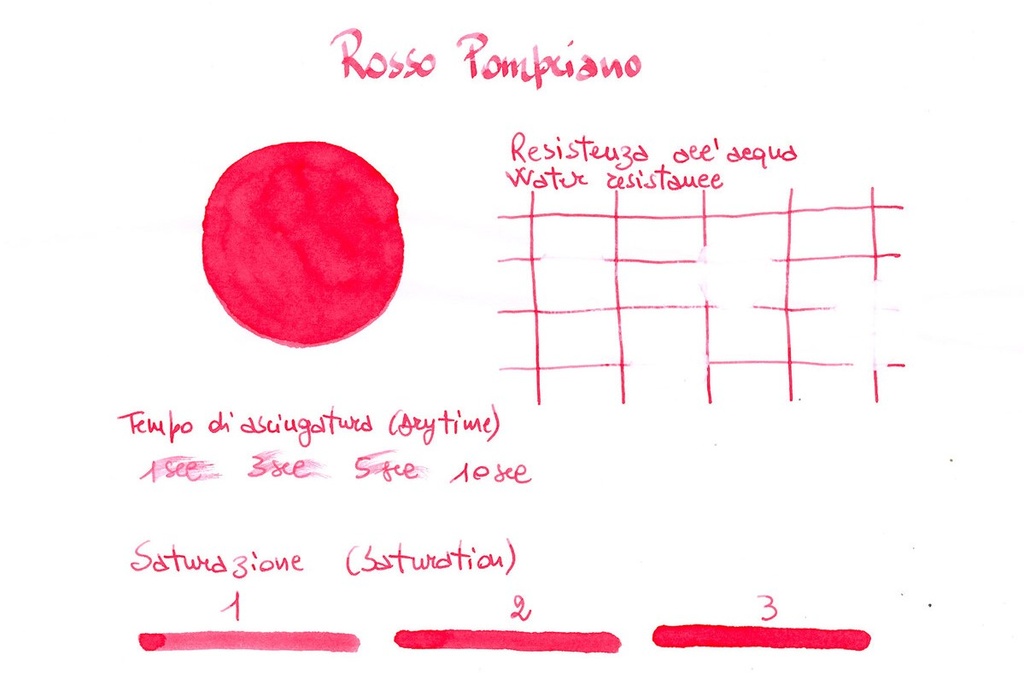 Rosso Pompeiano
Resistenza all'acqua
Water resistance
Tempo di asciugatura (Drytime)
1 sec 3 sec 5 sec 10 sec
Saturazione (Saturation)
1 2 3